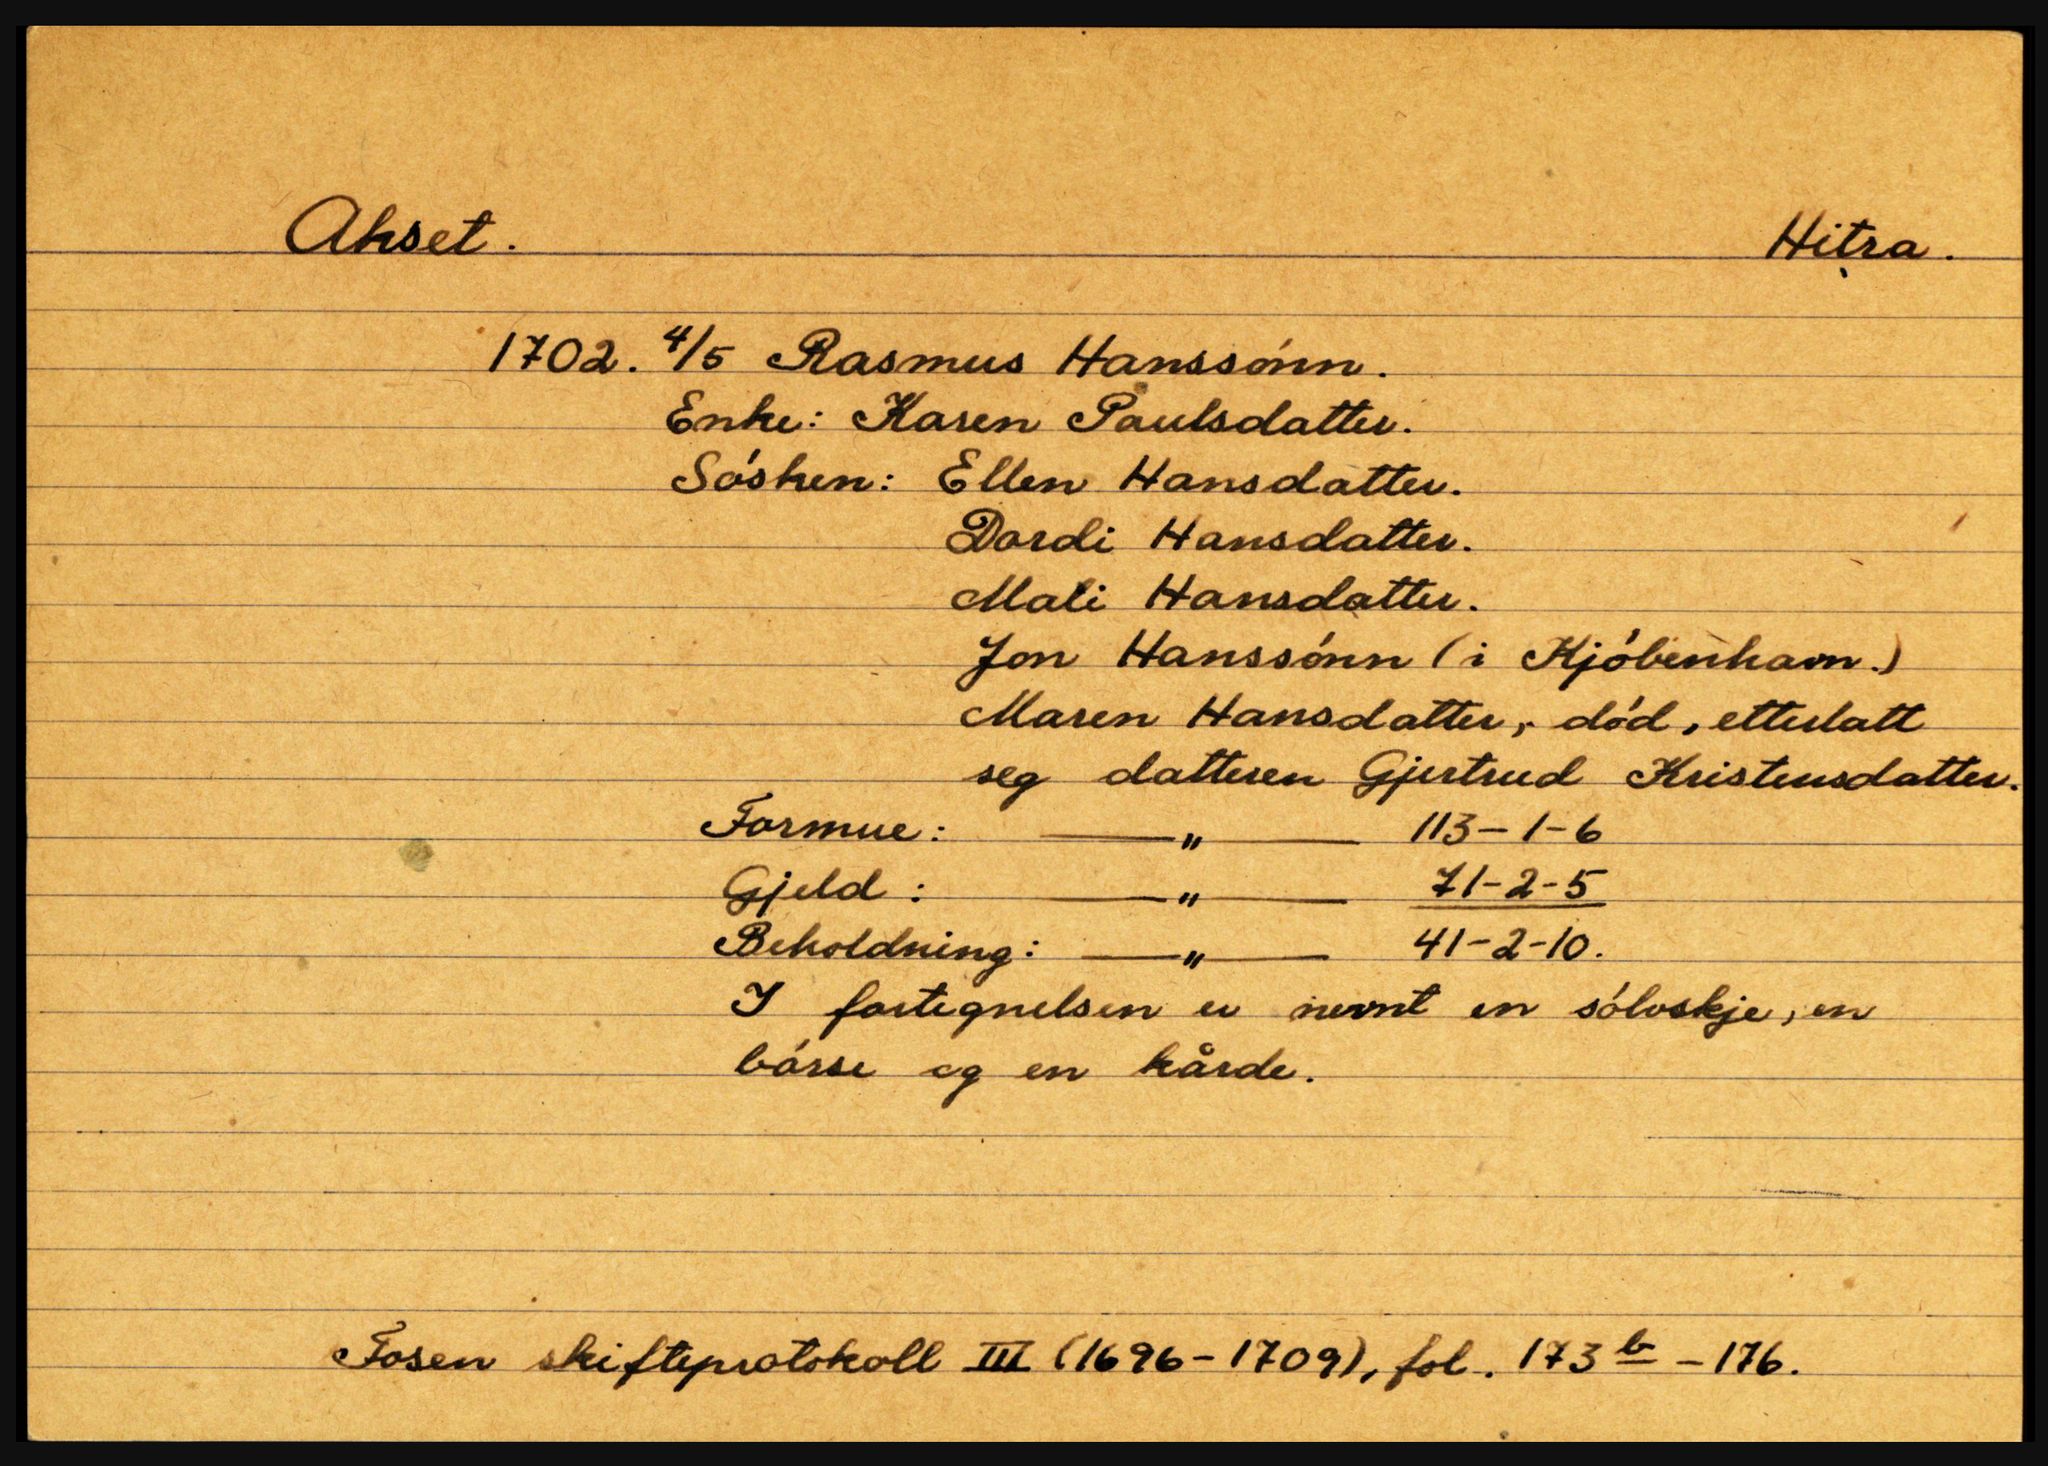 Akset. Hitra.
1702. 4/5 Rasmus Hanssónn.
Enke: Karen Paulsdatter.
Sósken: Ellen Hansdatter.
Dordi Hansdatter.
Mali Hansdatter.
Jon Hanssónn (i Kjóbenhavn.)
Maren Hansdatter, dód, etterlatt
seg datteren Gjertrud Kristensdatter.
Formue: —„— 113-1-6
Gjeld: —„— 71-2-5
Beholdning: —„— 41-2-10.
I fortegnelsen er nevnt en sólvskje, en
bórse og en kårde.
Fosen skifteprotokoll III (1696-1709), fol. 173b-176.